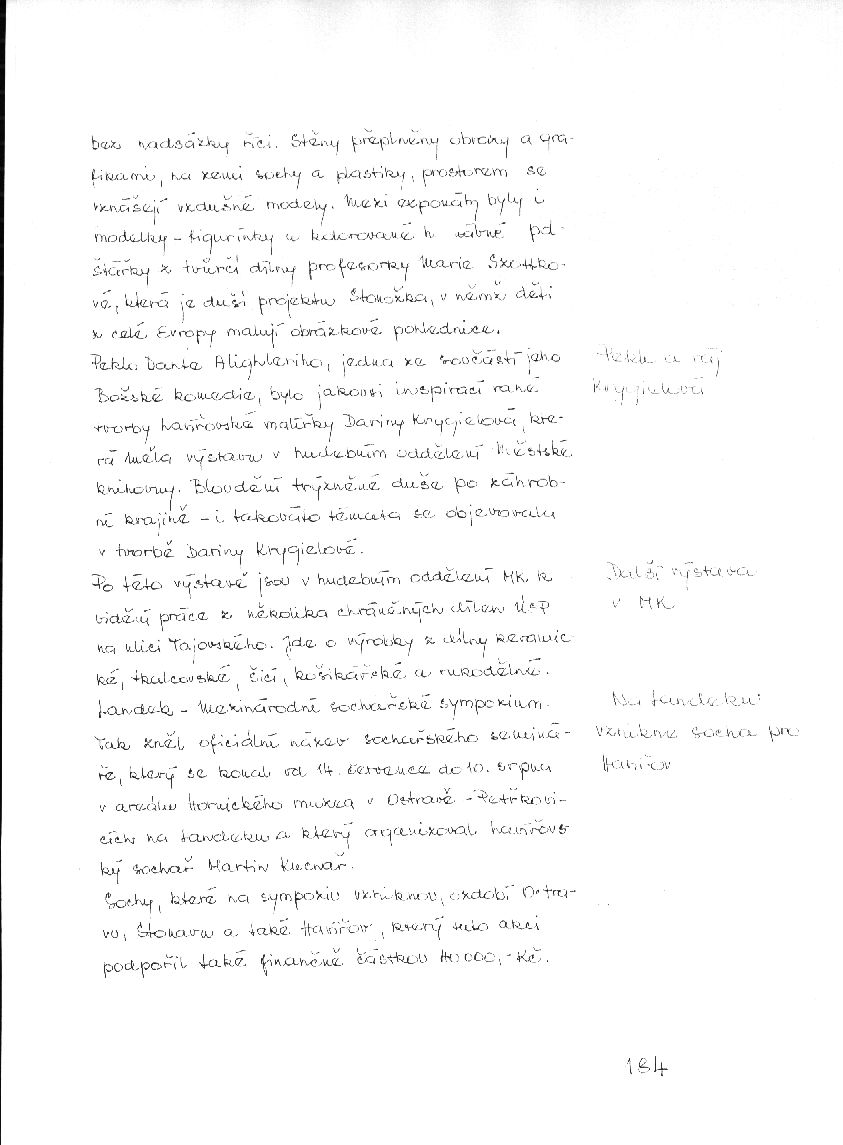 bez nadsázky říci. Stěny přeplněny obrazy a gra-
fikami, na zemi sochy a plastiky, prostorem se
vznášejí vzdušné modely. Mezi exponáty byly i
modelky - figurínky a kolorované h vábné pol-
štářky z tvůrčí dílny profesorky Marie Szottko-
vé, která je duší projektu Stonožka, v němž děti
z celé Evropy malují obrázkové pohlednice.
Peklo Danta Alighieriho, jedna ze součástí jeho
Božské komedie, bylo jakousi inspirací rané
tvorby havířovské malířky Dariny Krygielová, kte-
rá měla výstavu v hudebním oddělení Městské
knihovny. Bloudění trýzněné duše po záhrob-
ní krajině - i takováto témata se objevovala
v tvorbě Dariny Krygielové.
Po této výstavě jsou v hudebním oddělení MK k
vidění práce z několika chráněných dílen ÚSP
na ulici Tajovského. Jde o výrobky z dílny keramic-
ké, tkalcovské, šicí, košíkářské a rukodělné.
Landek - Mezinárodní sochařské sympozium.
Tak zněl oficiální název sochařského seminá-
ře, který se konal od 14. července do 10. srpna
v areálu Hornického muzea v Ostravě - Petřkovi-
cích na Landeku a který organizoval havířovs-
ký sochař Martin Kuchař.
Sochy, které na sympoziu vzniknou, ozdobí Ostra-
vu, Stonavu a také Havířov, který tuto akci
podpořil také finančně částkou 40 000,- Kč.
Peklo a ráj
Krygielová
Další výstava
v MK
Na Landeku
vznikne socha pro
Havířov
184